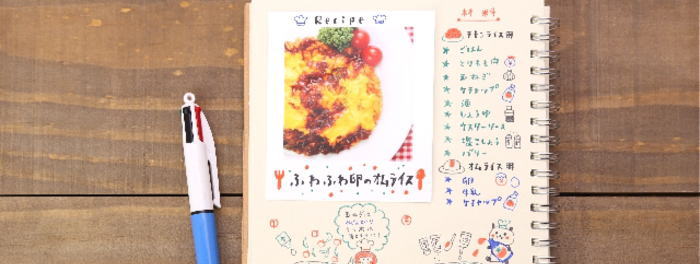 Recipe
ふわふわ卵のオムライス
材料
チキンライス用
ごはん
とりもも肉
玉ねぎ
ケチャップ
酒
しょうゆ
ウスターソース
塩こしょう
バター
オムライス用
卵
牛乳
ケチャップ
①
②